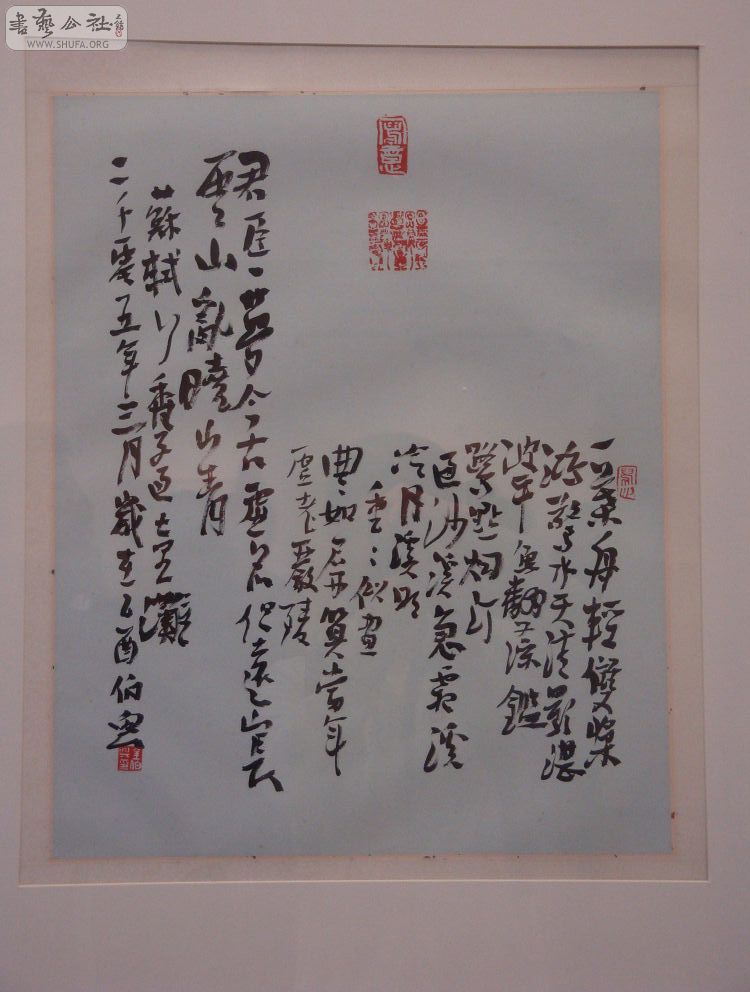 書藝公社
WWW.SHUFA.ORG
一葉舟輕雙槳
鴻驚水天清影湛
波平魚翻藻鑑
鷺點烟汀
過沙溪急霜溪
冷月溪明
重〻似畫
曲〻如屏算當年
虛老嚴陵
君臣一夢今古虛名但遠山長
雲山亂曉山青
蘇軾行香子過七里灘
二千零五年三月歲在乙酉伯